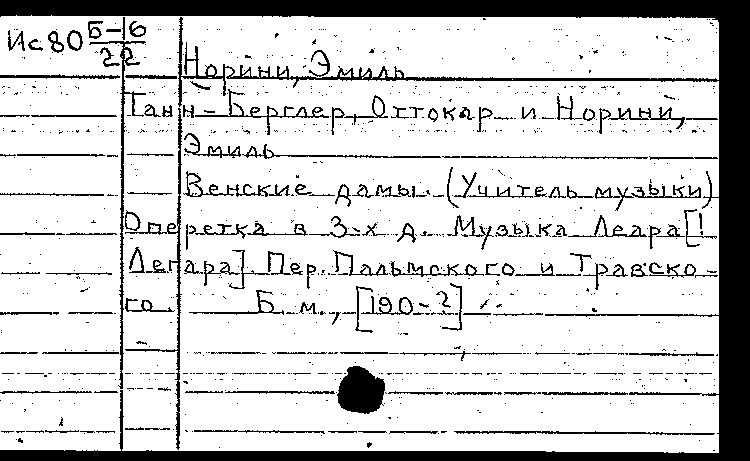 Ис80 Б-16/22
Норини, Эмиль
Танн-Берглер, Оттокар и Норини,
Эмиль
Венские дамы. (Учитель музыки)
Оперетка в 3-х д. Музыка Леара [!
Легара]. Пер. Пальмского и Травско-
го. Б. м., [190-?]